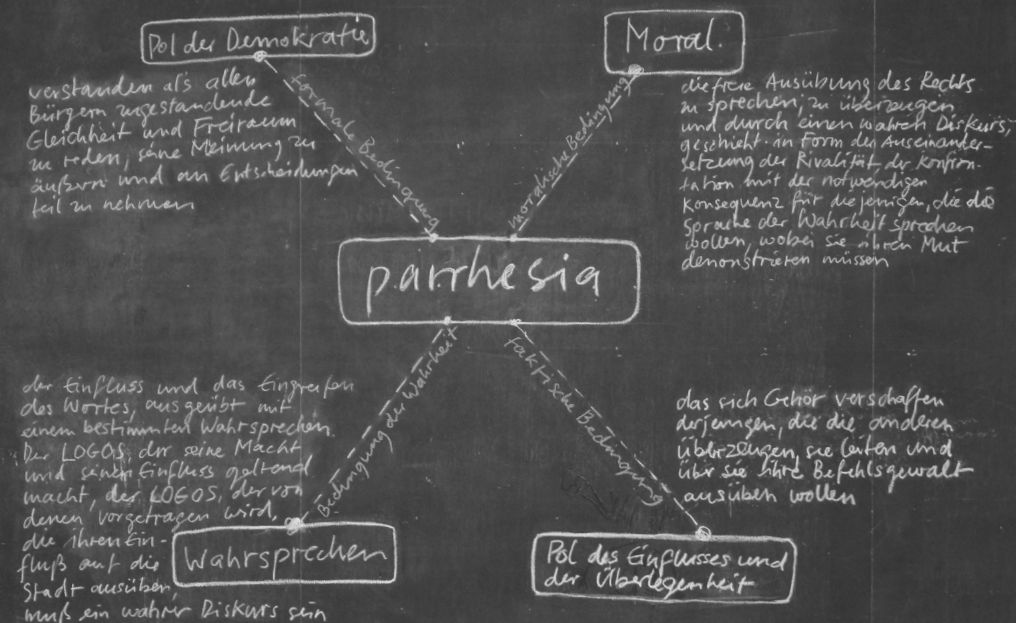 Pol der Demokratie
verstanden als allen
Bürgern zugestandende
Gleichheit und Freiraum
zu reden, seine Meinung zu
äußern und an Entscheidungen
teil zu nehmen
formale Bedingung
Moral.
die freie Ausübung des Rechts
zu sprechen, zu überzeugen
und durch einen wahren Diskurs,
geschieht in Form der Auseinander-
setzung der Rivalität, der Konfron-
tation mit der notwendigen
Konsequenz für diejenigen, die die
Sprache der Wahrheit sprechen
wollen, wobei sie ihren Mut
demonstrieren müssen
moralische Bedingung
parrhesia
Bedingung der Wahrheit
der Einfluss und das Eingreifen
des Wortes, ausgeübt mit
einem bestimmten Wahrsprechen.
Der LOGOS, der seine Macht
und seinen Einfluss geltend
macht, der LOGOS, der von
denen vorgetragen wird,
die ihren Ein-
fluß auf die
Stadt ausüben,
muß ein wahrer Diskurs sein
Wahrsprechen
faktische Bedingung
das sich Gehör verschaffen
derjenigen, die die anderen
überzeugen, sie leiten und
über sie ihre Befehlsgewalt
ausüben wollen
Pol des Einflusses und
der Überlegenheit